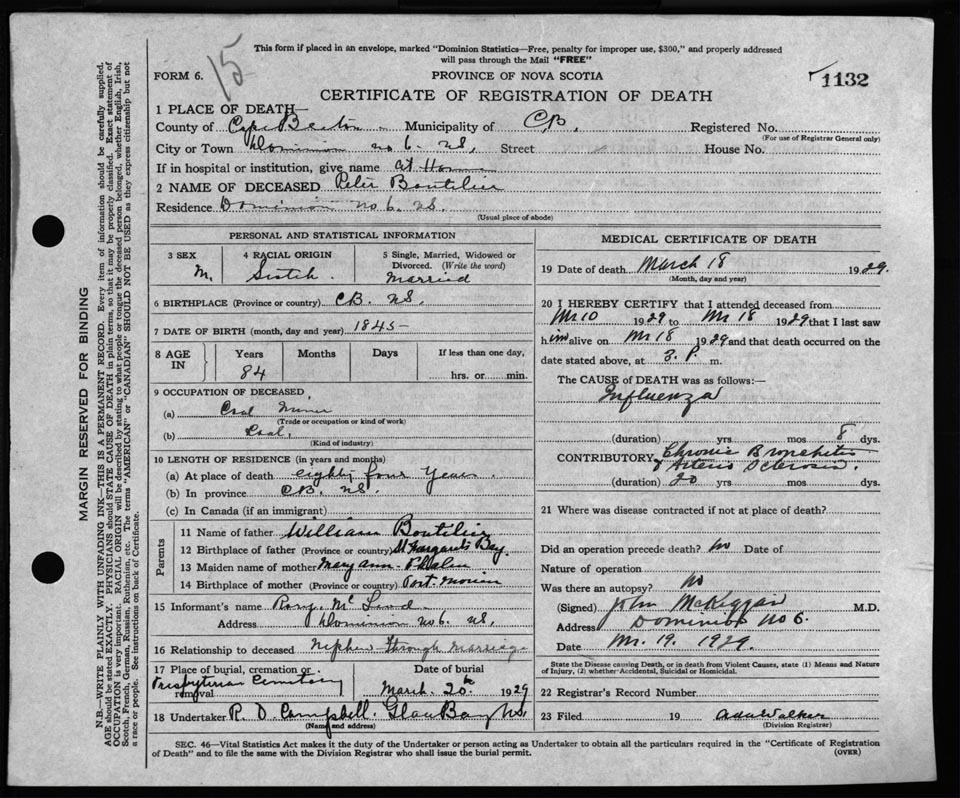 15
This form if placed in an envelope, marked "Dominion Statistics—Free, penalty for improper use, $300," and properly addressed
will pass through the Mail "FREE"
FORM 6. PROVINCE OF NOVA SCOTIA 1132
CERTIFICATE OF REGISTRATION OF DEATH
1 PLACE OF DEATH—
County of Cape Breton Municipality of C.B. Registered No.
(For use of Registrar General only)
City or Town Dominion No 6. N.S. Street House No.
If in hospital or institution, give name at Home
2 NAME OF DECEASED Peter Boutilier
Residence Dominion No 6. N.S.
(Usual place of abode)
PERSONAL AND STATISTICAL INFORMATION
3 SEX M. 4 RACIAL ORIGIN Scotch 5 Single, Married, Widowed or Divorced. (Write the word) Married
6 BIRTHPLACE (Province or country) C.B. N.S.
7 DATE OF BIRTH (month, day and year) 1845-
8 AGE IN Years 84 Months Days If less than one day, hrs. or min.
9 OCCUPATION OF DECEASED
(a) Coal Miner
(Trade or occupation or kind of work)
(b) Coal.
(Kind of industry)
10 LENGTH OF RESIDENCE (in years and months)
(a) At place of death eighty four Years
(b) In province C.B. N.S.
(c) In Canada (if an immigrant)
Parents
11 Name of father William Boutilier
12 Birthplace of father (Province or country) St Margarets Bay.
13 Maiden name of mother Mary Ann Phalen
14 Birthplace of mother (Province or country) Port Morien
15 Informant's name Mc
Address Dominion No 6. N.S.
16 Relationship to deceased Nephew Through Marriage
17 Place of burial, cremation or removal Presbyterian Cemetery Date of burial March 20th 1929
18 Undertaker R. D. Campbell. Glace Bay N.S.
(Name and address)
MEDICAL CERTIFICATE OF DEATH
19 Date of death March 18 1929.
(Month, day and year)
20 I HEREBY CERTIFY that I attended deceased from
Mr 10 1929 to Mr 18 1929 that I last saw
him alive on Mr 18 1929 and that death occurred on the
date stated above, at 3. P. m.
The CAUSE of DEATH was as follows:—
Influenza
(duration) yrs mos 8 dys.
CONTRIBUTORY Chronic Bronchitis
& Arterio Sclerosis
(duration) 20 yrs mos dys.
21 Where was disease contracted if not at place of death?
Did an operation precede death? No Date of
Nature of operation
Was there an autopsy? No
(Signed) John McKiggan M.D.
Address Dominion No 6.
Date Mr. 19. 1929.
State the Disease causing Death, or in death from Violent Causes, state (1) Means and Nature
of Injury, (2) whether Accidental, Suicidal or Homicidal.
22 Registrar's Record Number
23 Filed 19 Walker
(Division Registrar)
SEC. 46—Vital Statistics Act makes it the duty of the Undertaker or person acting as Undertaker to obtain all the particulars required in the "Certificate of Registration
of Death" and to file the same with the Division Registrar who shall issue the burial permit. (OVER)
MARGIN RESERVED FOR BINDING
N.B.—WRITE PLAINLY WITH UNFADING INK—THIS IS A PERMANENT RECORD. Every item of information should be carefully supplied.
AGE should be stated EXACTLY. PHYSICIANS should STATE CAUSE OF DEATH in plain terms, so that it may be properly classified. Exact statement of
OCCUPATION is very important. RACIAL ORIGIN will be described by stating to what people or tongue the deceased person belonged, whether English, Irish,
Scotch, French, German, Russian, Ruthenian, etc. The terms "AMERICAN" or "CANADIAN" SHOULD NOT BE USED as they express citizenship but not
a race or people. See instructions on back of Certificate.